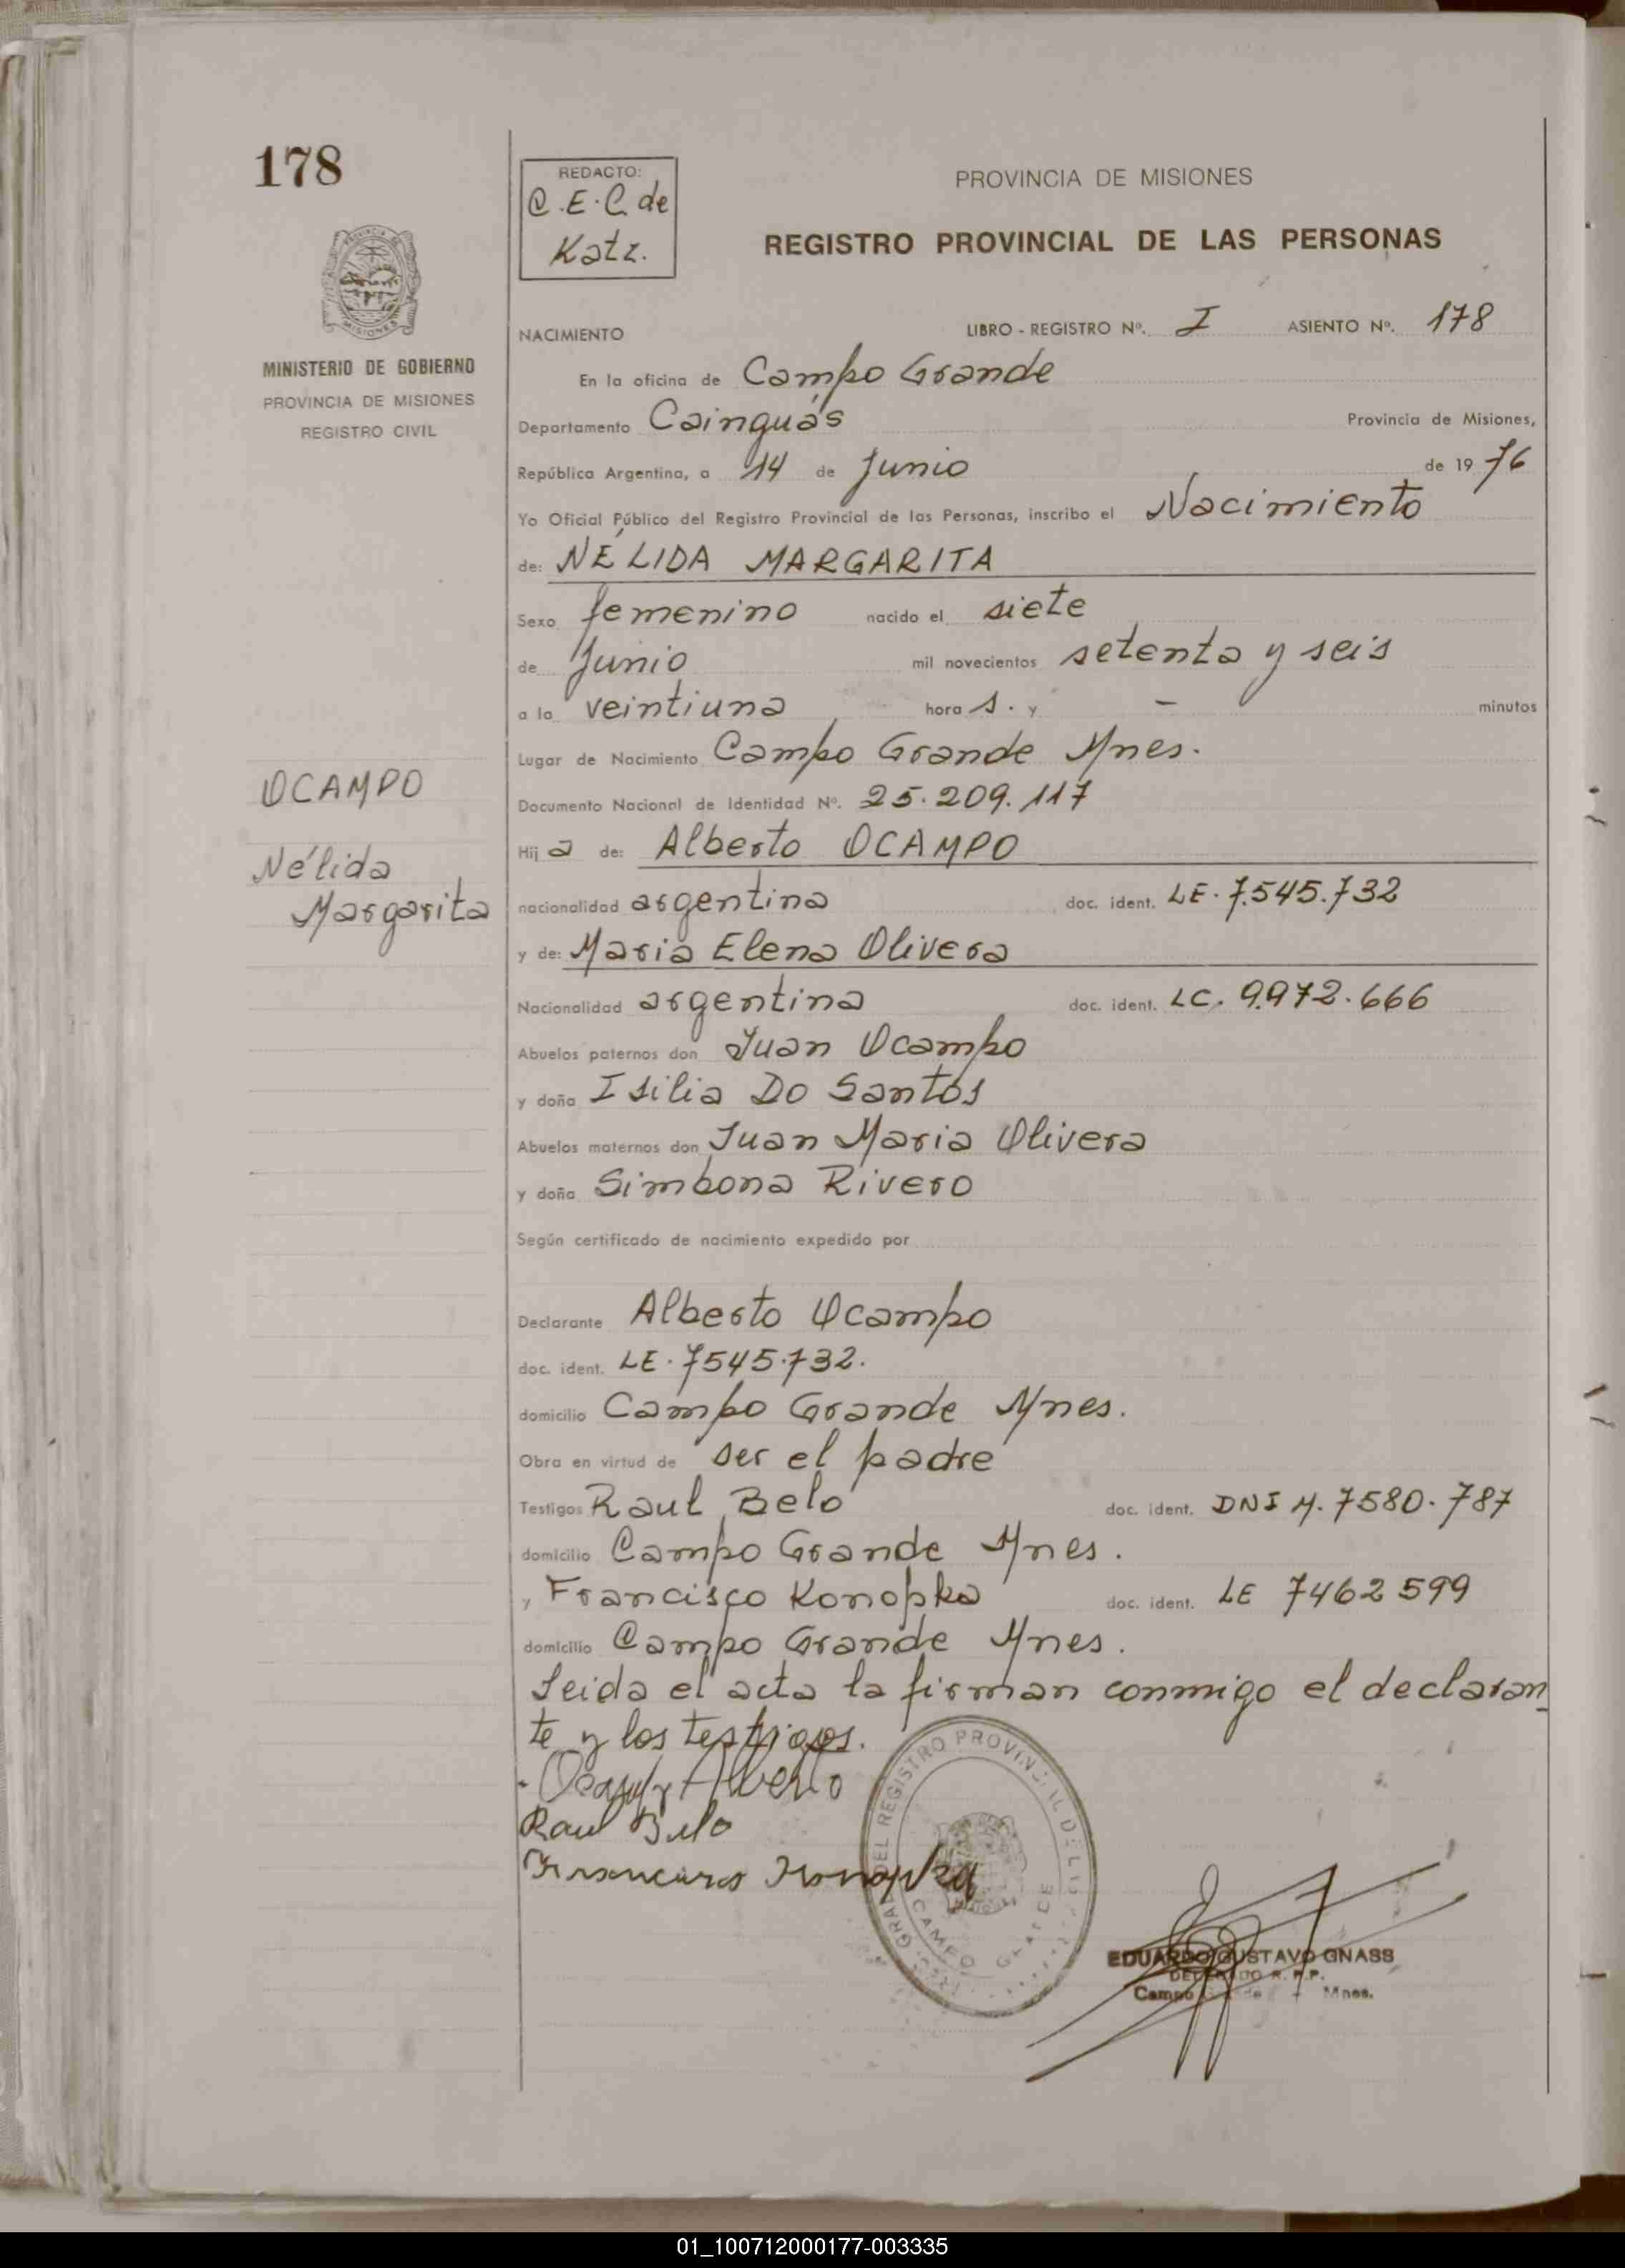 178
REDACTO:
C.E.C. de
Katz.
PROVINCIA DE MISIONES
REGISTRO PROVINCIAL DE LAS PERSONAS
PROVINCIA DE
MISIONES
MINISTERIO DE GOBIERNO
PROVINCIA DE MISIONES
REGISTRO CIVIL
NACIMIENTO LIBRO - REGISTRO Nº. I ASIENTO Nº. 178
En la oficina de Campo Grande
Departamento Cainguás Provincia de Misiones,
República Argentina, a 14 de Junio de 19 76
Yo Oficial Público del Registro Provincial de las Personas, inscribo el Nacimiento
de: NÉLIDA MARGARITA
Sexo femenino nacido el siete
de Junio mil novecientos setenta y seis
a la veintiuna hora s. y - minutos
Lugar de Nacimiento Campo Grande Mnes.
Documento Nacional de Identidad Nº. 25.209.117
OCAMPO
Nélida
Margarita
Hij a de: Alberto OCAMPO
nacionalidad argentina doc. ident. LE. 7.545.732
y de: Maria Elena Olivera
Nacionalidad argentina doc. ident. LC. 9.972.666
Abuelos paternos don Juan Ocampo
y doña Isilia Do Santos
Abuelos maternos don Juan Maria Olivera
y doña Simbona Rivero
Según certificado de nacimiento expedido por
Declarante Alberto Ocampo
doc. ident. LE. 7545.732.
domicilio Campo Grande Mnes.
Obra en virtud de ser el padre
Testigos Raul Belo doc. ident. DNI M. 7580.787
domicilio Campo Grande Mnes.
y Francisco Konopka doc. ident. LE 7462599
domicilio Campo Grande Mnes.
Leida el acta la firman conmigo el declaran
te y los testigos.
Ocampo Alberto
Raul Belo
Konopka
DEL REGISTRO PROVINCIAL DE
CAMPO GRANDE
EDUARDO GUSTAVO GNASS
DELEGADO R. P. P.
Campo Grande - Mnes.
01_100712000177-003335